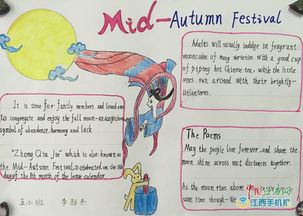 Mid-Autumn Festival
Adults will usually indulge in fragrant
mooncakes of many varieties with a good cup
of piping hot Chinese tea, while the little
ones run around with their brightly-
lit lanterns.
It is time for family members and loved ones
to congregate and enjoy the full moon - an auspicious
symbol of abundance, harmony and luck
"Zhong Qiu Jie" which is also known as
the Mid-Autumn Festival, is celebrated on the 15th
day of the 8th month of the lunar calendar.
The Poems
May the people live forever, and share the
moon shine across vast distances together.
As the moon rises above
same time though
江西手机报